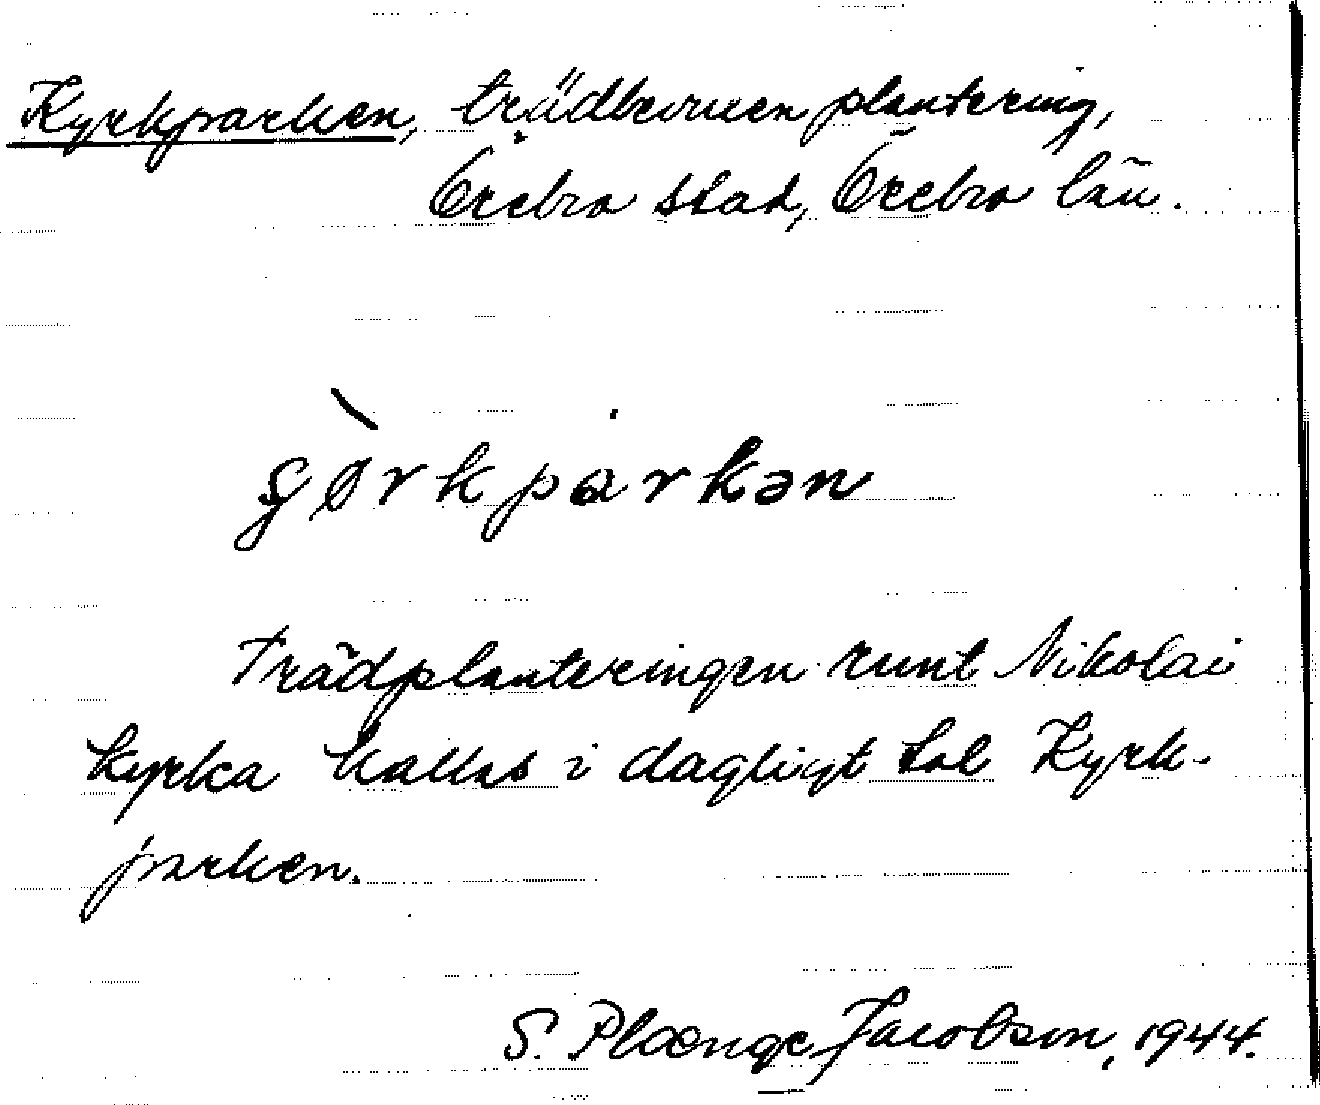 Kyrkparken, trädbevuxen plantering,
Örebro stad, Örebro län.
çø̀rkpàrkən
Trädplanteringen runt Nikolai
kyrka kallas i dagligt tal Kyrk-
parken.
S. Plænge Jacobson, 1944.